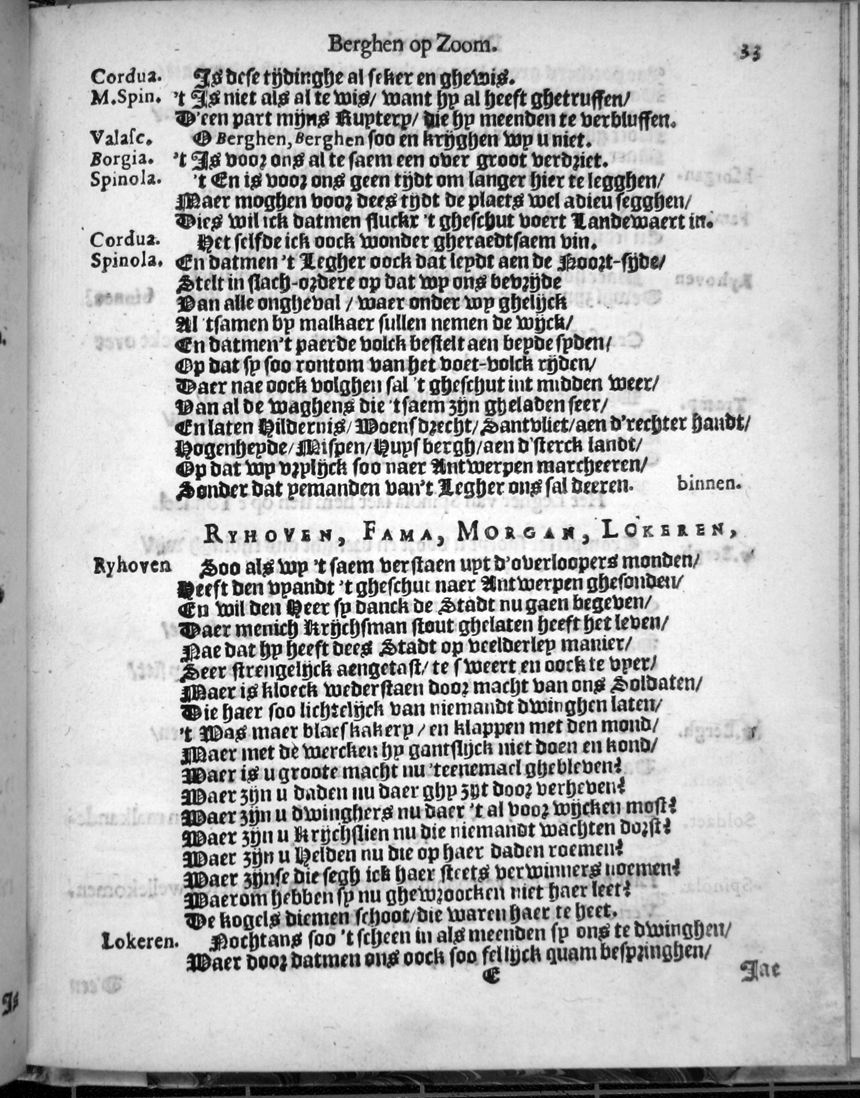 Berghen op Zoom. 33
Cordua. Is dese tijdinghe al seker en ghewis.
M.Spin. 't Is niet als al te wis/ want hy al heeft ghetruffen/
D'een part mijns Ruytery/ die hy meenden te verbluffen.
Valasc. O Berghen, Berghen soo en krijghen wy u niet.
Borgia. 't Is voor ons al te saem een over groot verdriet.
Spinola. 't En is voor ons geen tijdt om langer hier te legghen/
Maer moghen voor dees tijdt de plaets wel adieu segghen/
Dies wil ick datmen fluckx 't gheschut voert Landewaert in.
Cordua. Het selfde ick oock wonder gheraedtsaem vin.
Spinola. En datmen 't Legher oock dat leydt aen de Noort-sijde/
Stelt in slach-ordere op dat wy ons bevrijde
Van alle ongheval / waer onder wy ghelijck
Al 'tsamen by malkaer sullen nemen de wijck/
En datmen't paerde volck bestelt aen beyde syden/
Op dat sy soo rontom van het voet-volck rijden/
Daer nae oock volghen sal 't gheschut int midden weer/
Van al de waghens die 'tsaem zijn gheladen seer/
En laten Hildernis/ Woensdrecht/ Santvliet/ aen d'rechter handt/
Hogenheyde/ Nispen/ Huysbergh/ aen d'sterck landt/
Op dat wy vrylijck soo naer Antwerpen marcheeren/
Sonder dat yemanden van't Legher ons sal deeren. binnen.
RYHOVEN, FAMA, MORGAN, LOKEREN,
Ryhoven Soo als wy 't saem verstaen uyt d'overloopers monden/
Heeft den vyandt 't gheschut naer Antwerpen ghesonden/
En wil den Heer sy danck de Stadt nu gaen begeven/
Daer menich Krijchsman stout ghelaten heeft het leven/
Nae dat hy heeft dees Stadt op veelderley manier/
Seer strengelijck aengetast/ te sweert en oock te vyer/
Maer is kloeck wederstaen door macht van ons Soldaten/
Die haer soo lichtelijck van niemandt dwinghen laten/
't Was maer blaeskakery / en klappen met den mond/
Maer met de wercken hy gantslijck niet doen en kond/
Waer is u groote macht nu 'teenemael ghebleven?
Waer zijn u daden nu daer ghy zyt door verheven?
Waer zijn u dwinghers nu daer 't al voor wijcken most?
Waer zijn u Krijchslien nu die niemandt wachten dorst?
Waer zijn u Helden nu die op haer daden roemen?
Waer zijnse die segh ick haer steets verwinners noemen?
Waerom hebben sy nu ghewroocken niet haer leet?
De kogels diemen schoot/ die waren haer te heet.
Lokeren. Nochtans soo 't scheen in als meenden sy ons te dwinghen/
Waer door datmen ons oock soo fellijck quam bespringhen/
E Jae